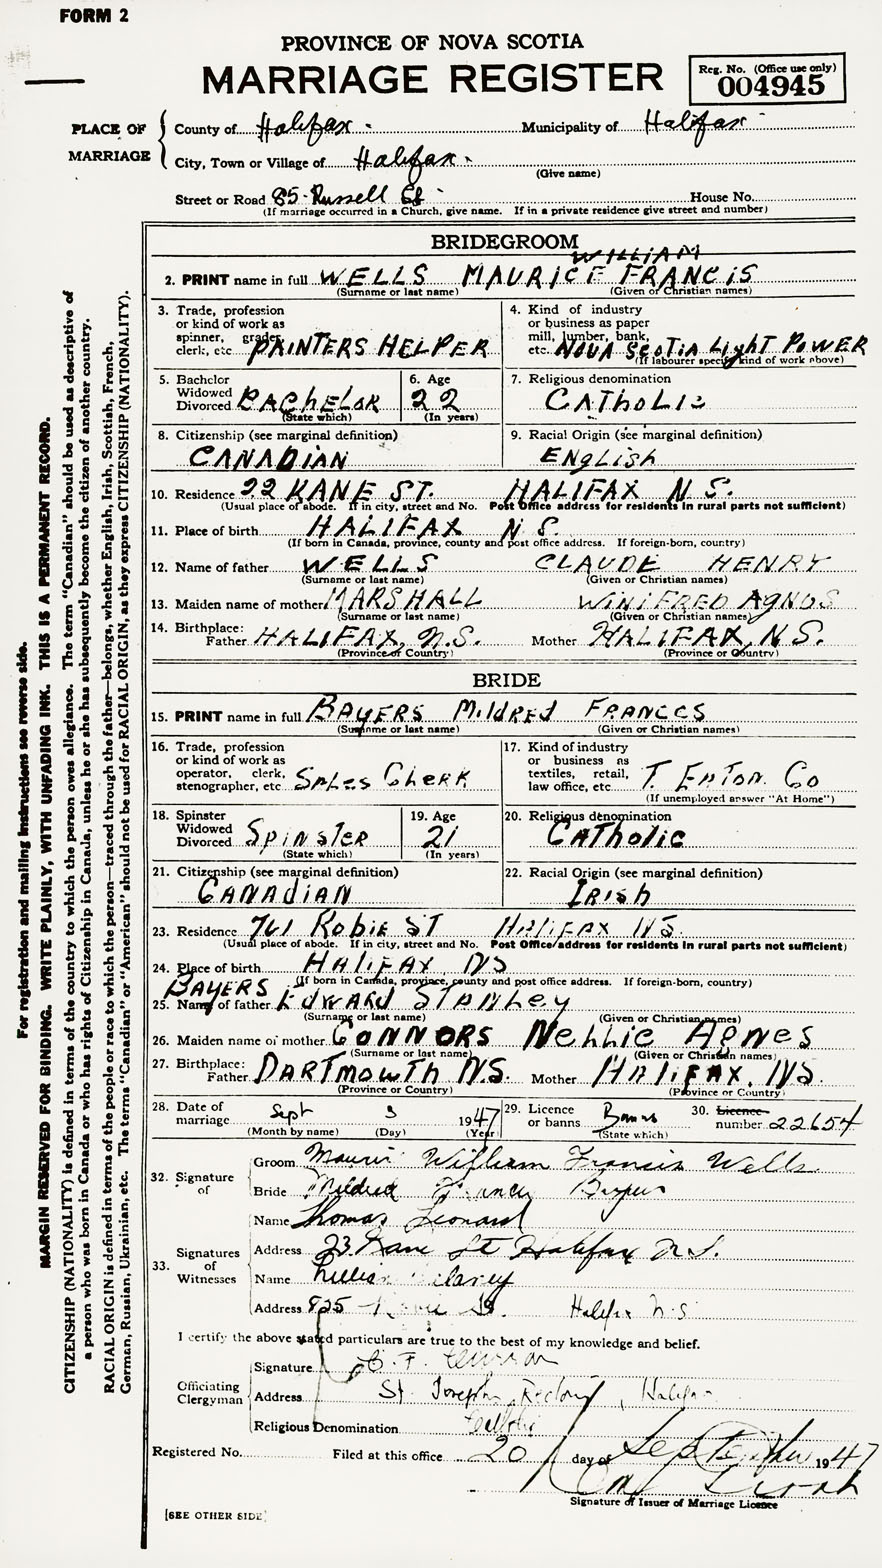 FORM 2
PROVINCE OF NOVA SCOTIA
MARRIAGE REGISTER
Reg. No. (Office use only)
004945
PLACE OF MARRIAGE
County of Halifax Municipality of Halifax
City, Town or Village of Halifax
(Give name)
Street or Road 85 Russell St. House No.
(If marriage occurred in a Church, give name. If in a private residence give street and number)
BRIDEGROOM
WILLIAM
2. PRINT name in full WELLS MAURICE FRANCIS
(Surname or last name) (Given or Christian names)
3. Trade, profession or kind of work as spinner, grader, clerk, etc PAINTERS HELPER
4. Kind of industry or business as paper mill, lumber, bank, etc. NOVA SCOTIA LIGHT POWER
(If labourer specify kind of work above)
5. Bachelor Widowed Divorced BACHELOR
(State which)
6. Age 22
(In years)
7. Religious denomination
CATHOLIC
8. Citizenship (see marginal definition)
CANADIAN
9. Racial Origin (see marginal definition)
ENGLISH
10. Residence 22 KANE ST. HALIFAX N.S.
(Usual place of abode. If in city, street and No. Post Office address for residents in rural parts not sufficient)
11. Place of birth HALIFAX N.S.
(If born in Canada, province, county and post office address. If foreign-born, country)
12. Name of father WELLS CLAUDE HENRY
(Surname or last name) (Given or Christian names)
13. Maiden name of mother MARSHALL WINIFRED AGNUS
(Surname or last name) (Given or Christian names)
14. Birthplace: Father HALIFAX, N.S. Mother HALIFAX, N.S.
(Province or Country) (Province or Country)
BRIDE
15. PRINT name in full BAYERS MILDRED FRANCES
(Surname or last name) (Given or Christian names)
16. Trade, profession or kind of work as operator, clerk, stenographer, etc SALES CLERK
17. Kind of industry or business as textiles, retail, law office, etc. T. EATON CO
(If unemployed answer "At Home")
18. Spinster Widowed Divorced SPINSTER
(State which)
19. Age 21
(In years)
20. Religious denomination
CATHOLIC
21. Citizenship (see marginal definition)
CANADIAN
22. Racial Origin (see marginal definition)
IRISH
23. Residence 761 ROBIE ST HALIFAX NS.
(Usual place of abode. If in city, street and No. Post Office address for residents in rural parts not sufficient)
24. Place of birth HALIFAX, NS
(If born in Canada, province, county and post office address. If foreign-born, country)
25. Name of father BAYERS EDWARD STANLEY
(Surname or last name) (Given or Christian names)
26. Maiden name of mother CONNORS NELLIE AGNES
(Surname or last name) (Given or Christian names)
27. Birthplace: Father DARTMOUTH N.S. Mother HALIFAX, NS.
(Province or Country) (Province or Country)
28. Date of marriage Sept 3 1947
(Month by name) (Day) (Year)
29. Licence or banns Banns
(State which)
30. Licence number 22654
32. Signature of
Groom William Francis Wells
Bride Mildred
33. Signatures of Witnesses
Name Thomas Leonard
Address 23 Kane St Halifax N.S.
Name Lillian
Address 825 St. Halifax N.S.
I certify the above stated particulars are true to the best of my knowledge and belief.
Officiating Clergyman
Signature
Address St. Josephs Rectory, Halifax
Religious Denomination Catholic
Registered No. Filed at this office 20 day of September 1947
Signature of Issuer of Marriage Licence
[SEE OTHER SIDE]
For registration and mailing instructions see reverse side.
MARGIN RESERVED FOR BINDING. WRITE PLAINLY, WITH UNFADING INK. THIS IS A PERMANENT RECORD.
CITIZENSHIP (NATIONALITY) is defined in terms of the country to which the person owes allegiance. The term "Canadian" should be used as descriptive of
a person who was born in Canada or who has rights of Citizenship in Canada, unless he or she has subsequently become the citizen of another country.
RACIAL ORIGIN is defined in terms of the people or race to which the person—traced through the father—belongs, whether English, Irish, Scottish, French,
German, Russian, Ukrainian, etc. The terms "Canadian" or "American" should not be used for RACIAL ORIGIN, as they express CITIZENSHIP (NATIONALITY).